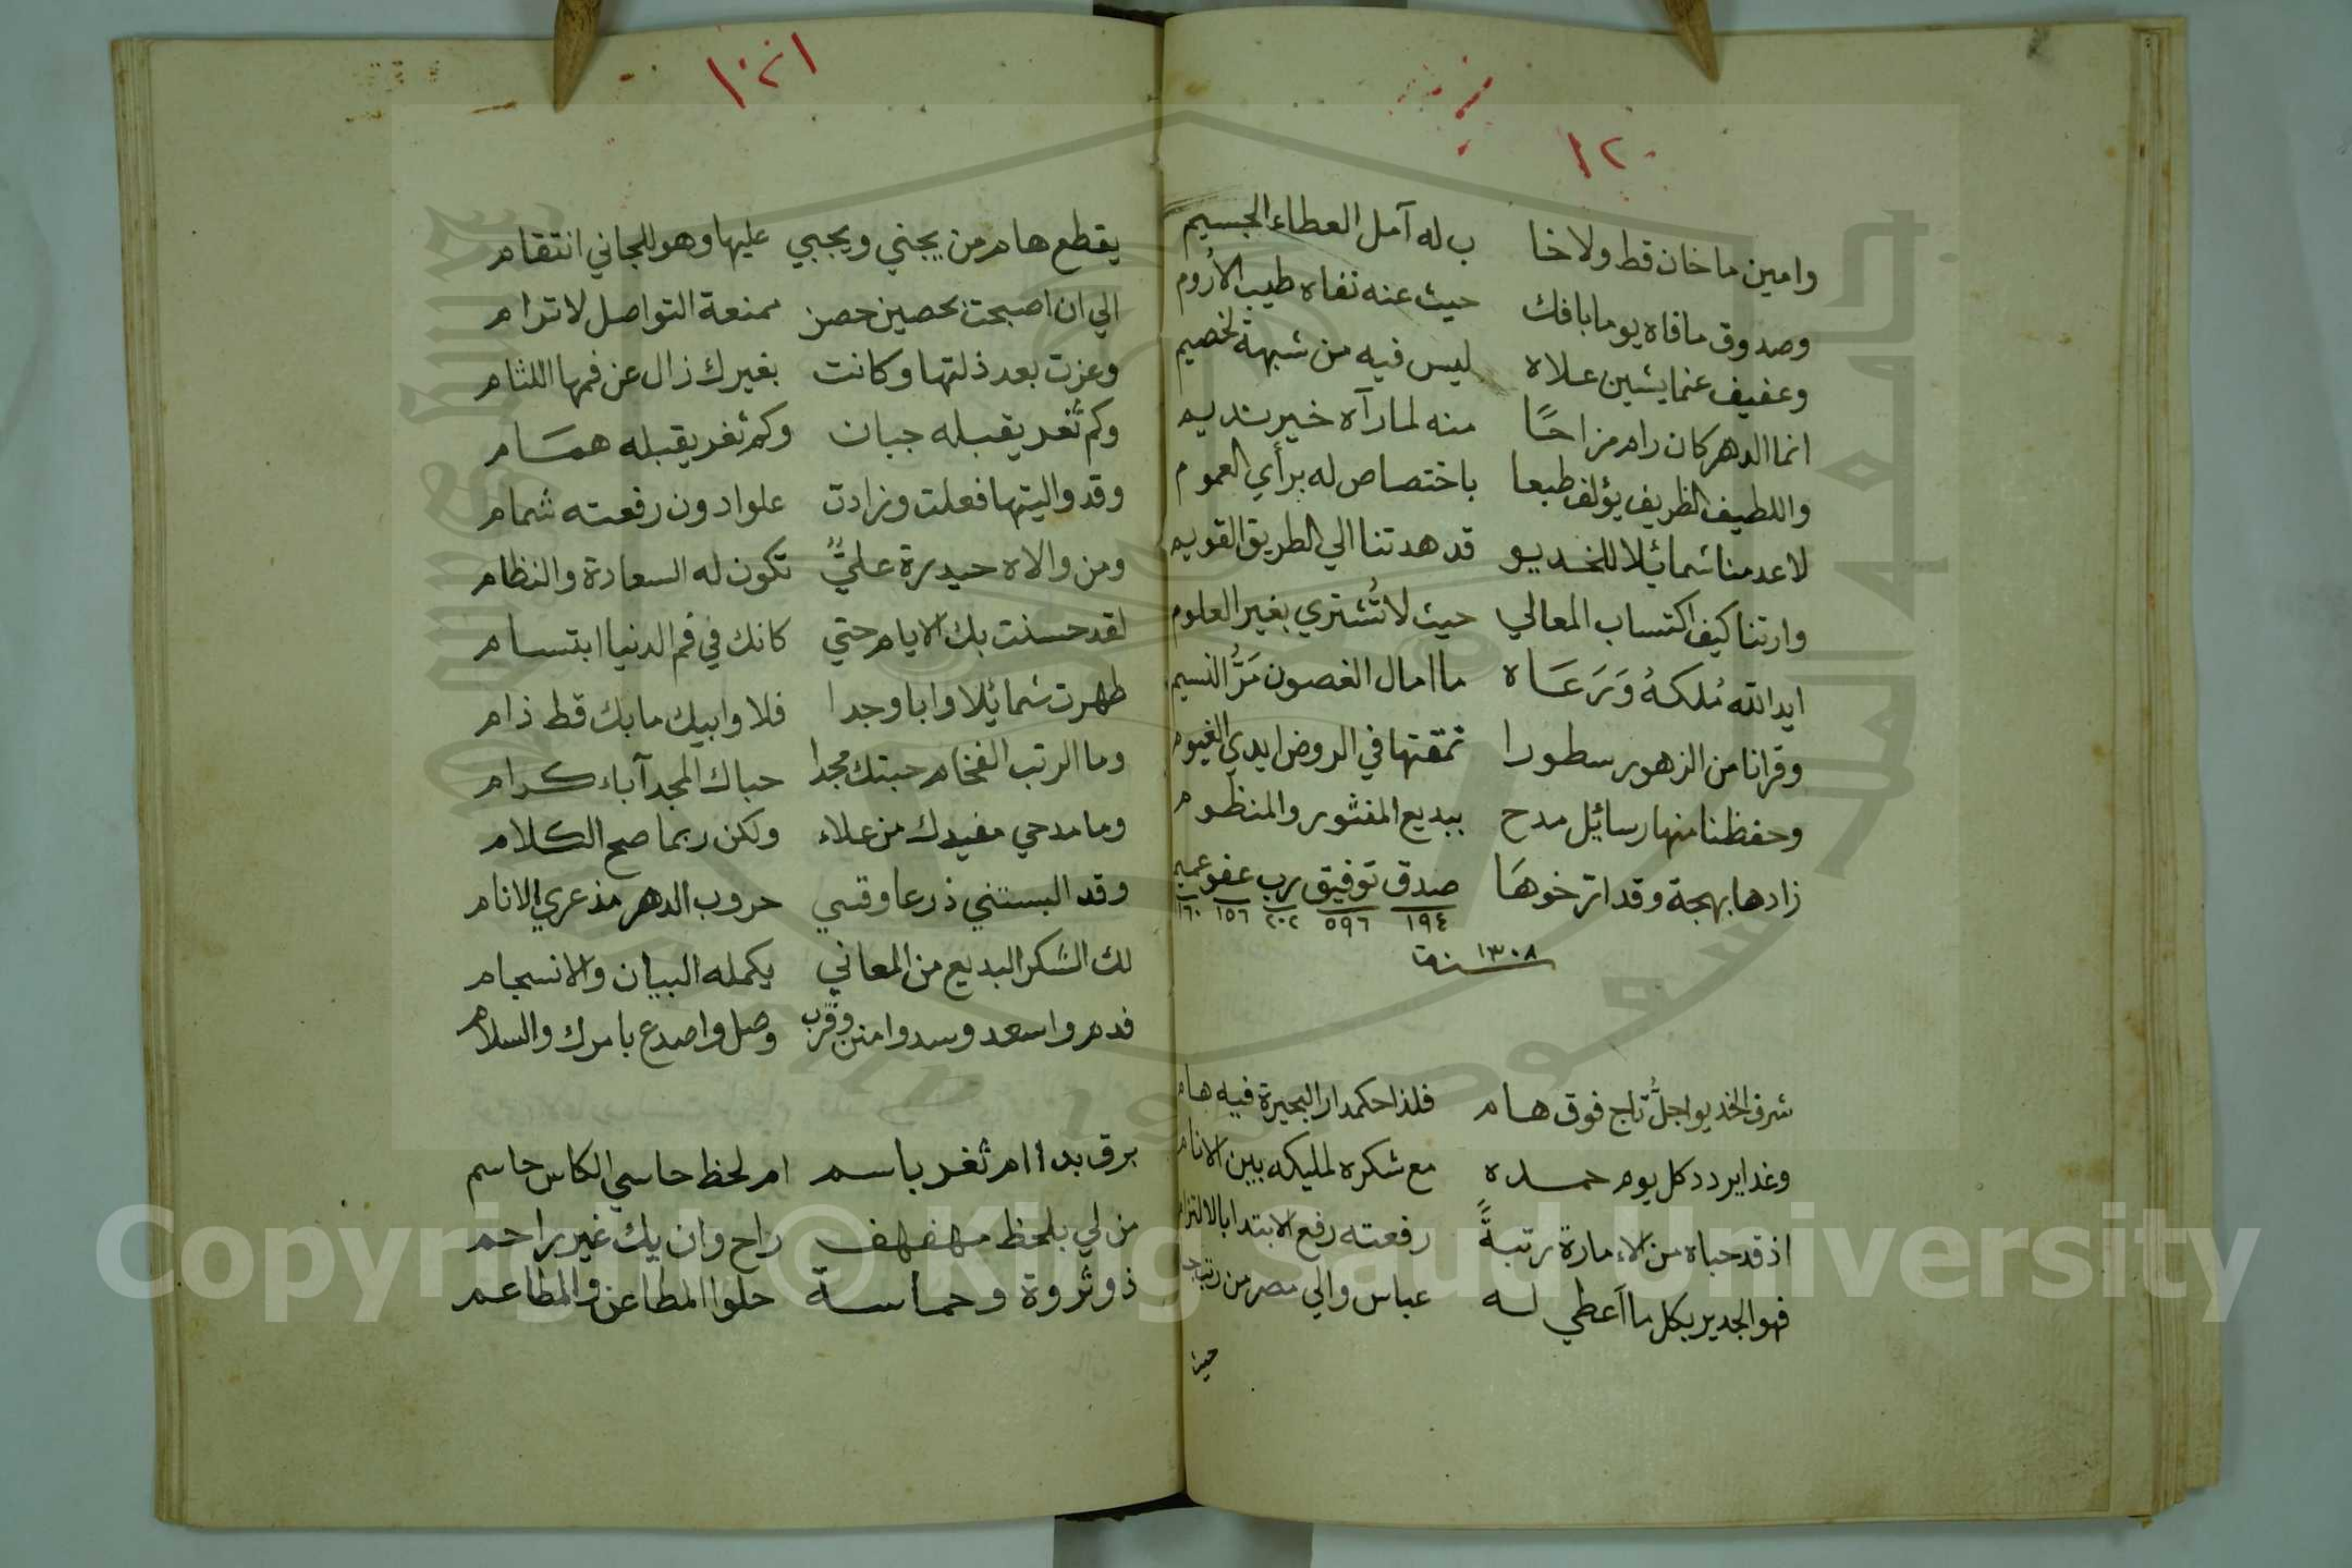 ١٢٠
وامين ما خان قط ولا خا ب له آمل العطاء الجسيم
وصدوق ما فاه يوما بافك حيث عنه نفاه طيب الأروم
وعفيف عنما يشين علاه ليس فيه من شبهة لخصيم
انما الدهر كان رام مزاحًا منه لما رآه خير نديم
واللطيف الظريف يؤلف طبعا باختصاص له برأي العموم
لا عدمنا شمائيلا للخديو قد هدتنا الي الطريق القويم
وارتنا كيف اكتساب المعالي حيث لا تُشتري بغير العلوم
ايد الله مُلكهُ وَرَعَاه ما امال الغصون مَرُّ النسيم
وقرانا من الزهور سطورا نمقتها في الروض ايدي الغيوم
وحفظنا منها رسائيل مدح ببديع المنثور والمنظوم
زادها بهجة وقد ارّخوهَا صدق توفيق رب عفو عميم
١٩٤ ٥٩٦ ٢٠٢ ١٥٦ ١٦٠
سنة ١٣٠٨
شرف الخديو اجلُّ تاج فوق هام فلذا حكمدار البحيرة فيه هام
وغدا يردد كل يوم حمده مع شكره لمليكه بين الانام
اذ قد حباه من الاءمارة رتبةً رفعته رفع الابتدا بالالتزام
فهو الجدير بكل ما أعطي له عباس والي مصر من رتب
١٢١
يقطع هام من يجني ويجبي عليها وهو للجاني انتقام
الي ان اصبحت بحصين حصن ممنعة التواصل لا ترام
وعزت بعد ذلتها وكانت بغيرك زال عن فمها اللثام
وكم ثغر يقبله جبان وكم ثغر يقبله همام
وقد واليتها فعلت وزادت علوا دون رفعته شمام
ومن والاه حيدرة عليٌّ تكون له السعادة والنظام
لقد حسنت بك الايام حتي كانك في فم الدنيا ابتسام
طهرت شمائيلا وابا وجدا فلا وابيك ما بك قط ذام
وما الرتب الفخام حبتك مجدا حباك المجد آباء كرام
وما مدحي مفيدك من علاء ولكن ربما صح الكلام
وقد البستني ذرعا وقسي حروب الدهر مذ عري الانام
لك الشكر البديع من المعاني يكمله البيان والانسجام
فدم واسعد وسد وامنن وقرب وصل واصدع بامرك والسلام
برق بدا ام ثغر باسم ام لحظ حاسي الكاس حاسم
من لي بلحظ مهفهف راح وان يك غير راحم
ذو ثروة وحماسة حلوا المطاعن والمطاعم
Copyright © King Saud University